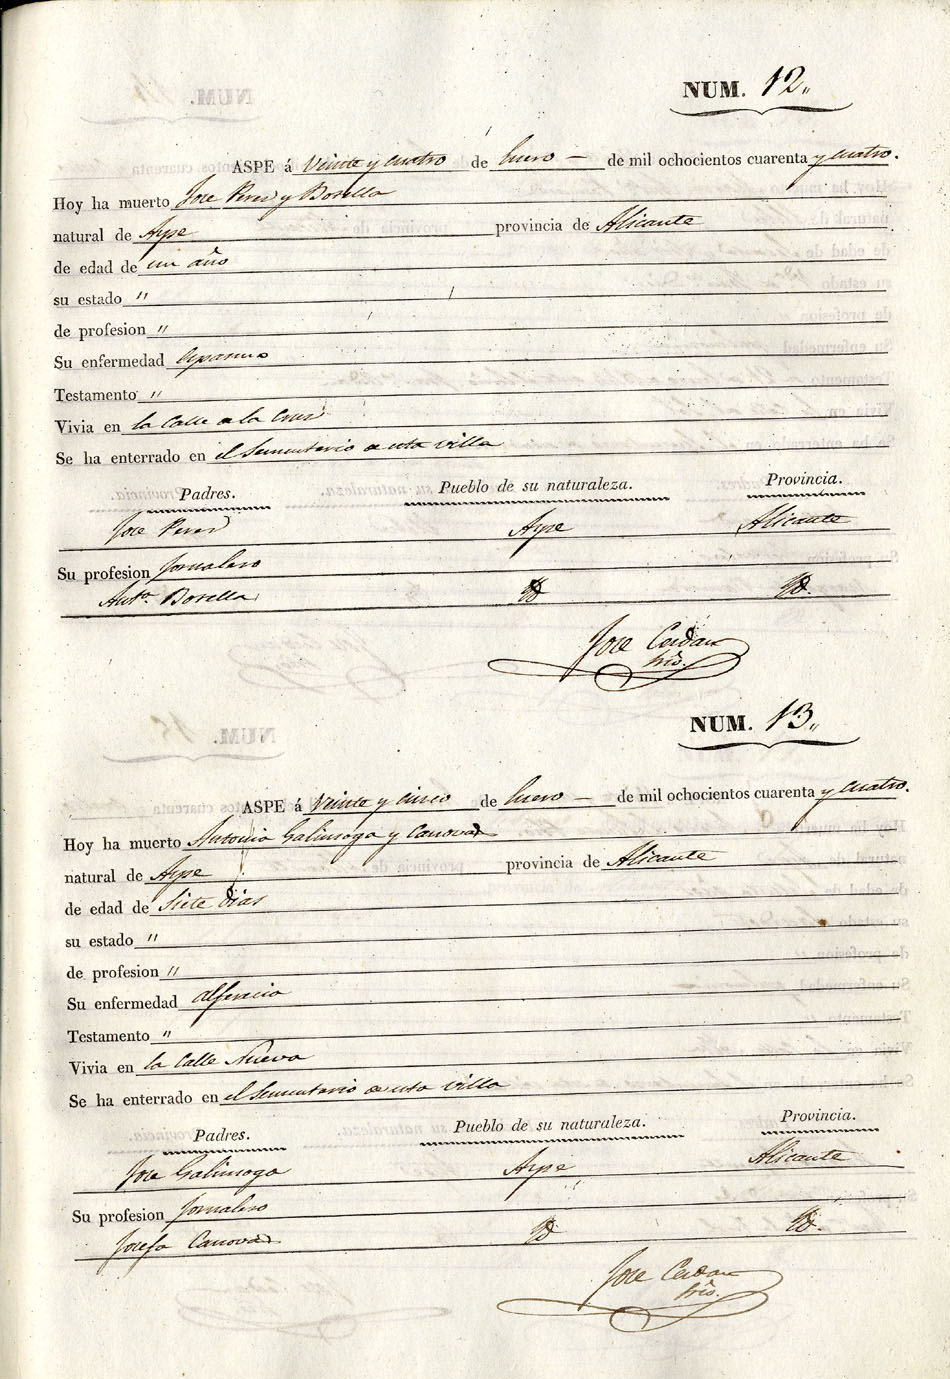 NUM. 12,,
ASPE á Veinte y cuatro de Enero — de mil ochocientos cuarenta y cuatro.
Hoy ha muerto Jose Perez y Botella
natural de Aspe provincia de Alicante
de edad de un año
su estado "
de profesion "
Su enfermedad Espasmo
Testamento "
Vivia en la Calle de la Cruz
Se ha enterrado en el Sementerio de esta villa
Padres. Pueblo de su naturaleza. Provincia.
Jose Perez Aspe Alicante
Su profesion Jornalero
Antª. Botella Yd Yd.
Jose Cerdan
NUM. 13,,
ASPE á Veinte y cinco de Enero — de mil ochocientos cuarenta y cuatro.
Hoy ha muerto Antonia Galinsoga y Canovas
natural de Aspe provincia de Alicante
de edad de Siete dias
su estado "
de profesion "
Su enfermedad alferecia
Testamento "
Vivia en la Calle Nueva
Se ha enterrado en el Sementerio de esta villa
Padres. Pueblo de su naturaleza. Provincia.
Jose Galinsoga Aspe Alicante
Su profesion Jornalero
Josefa Canovas Yd Yd.
Jose Cerdan